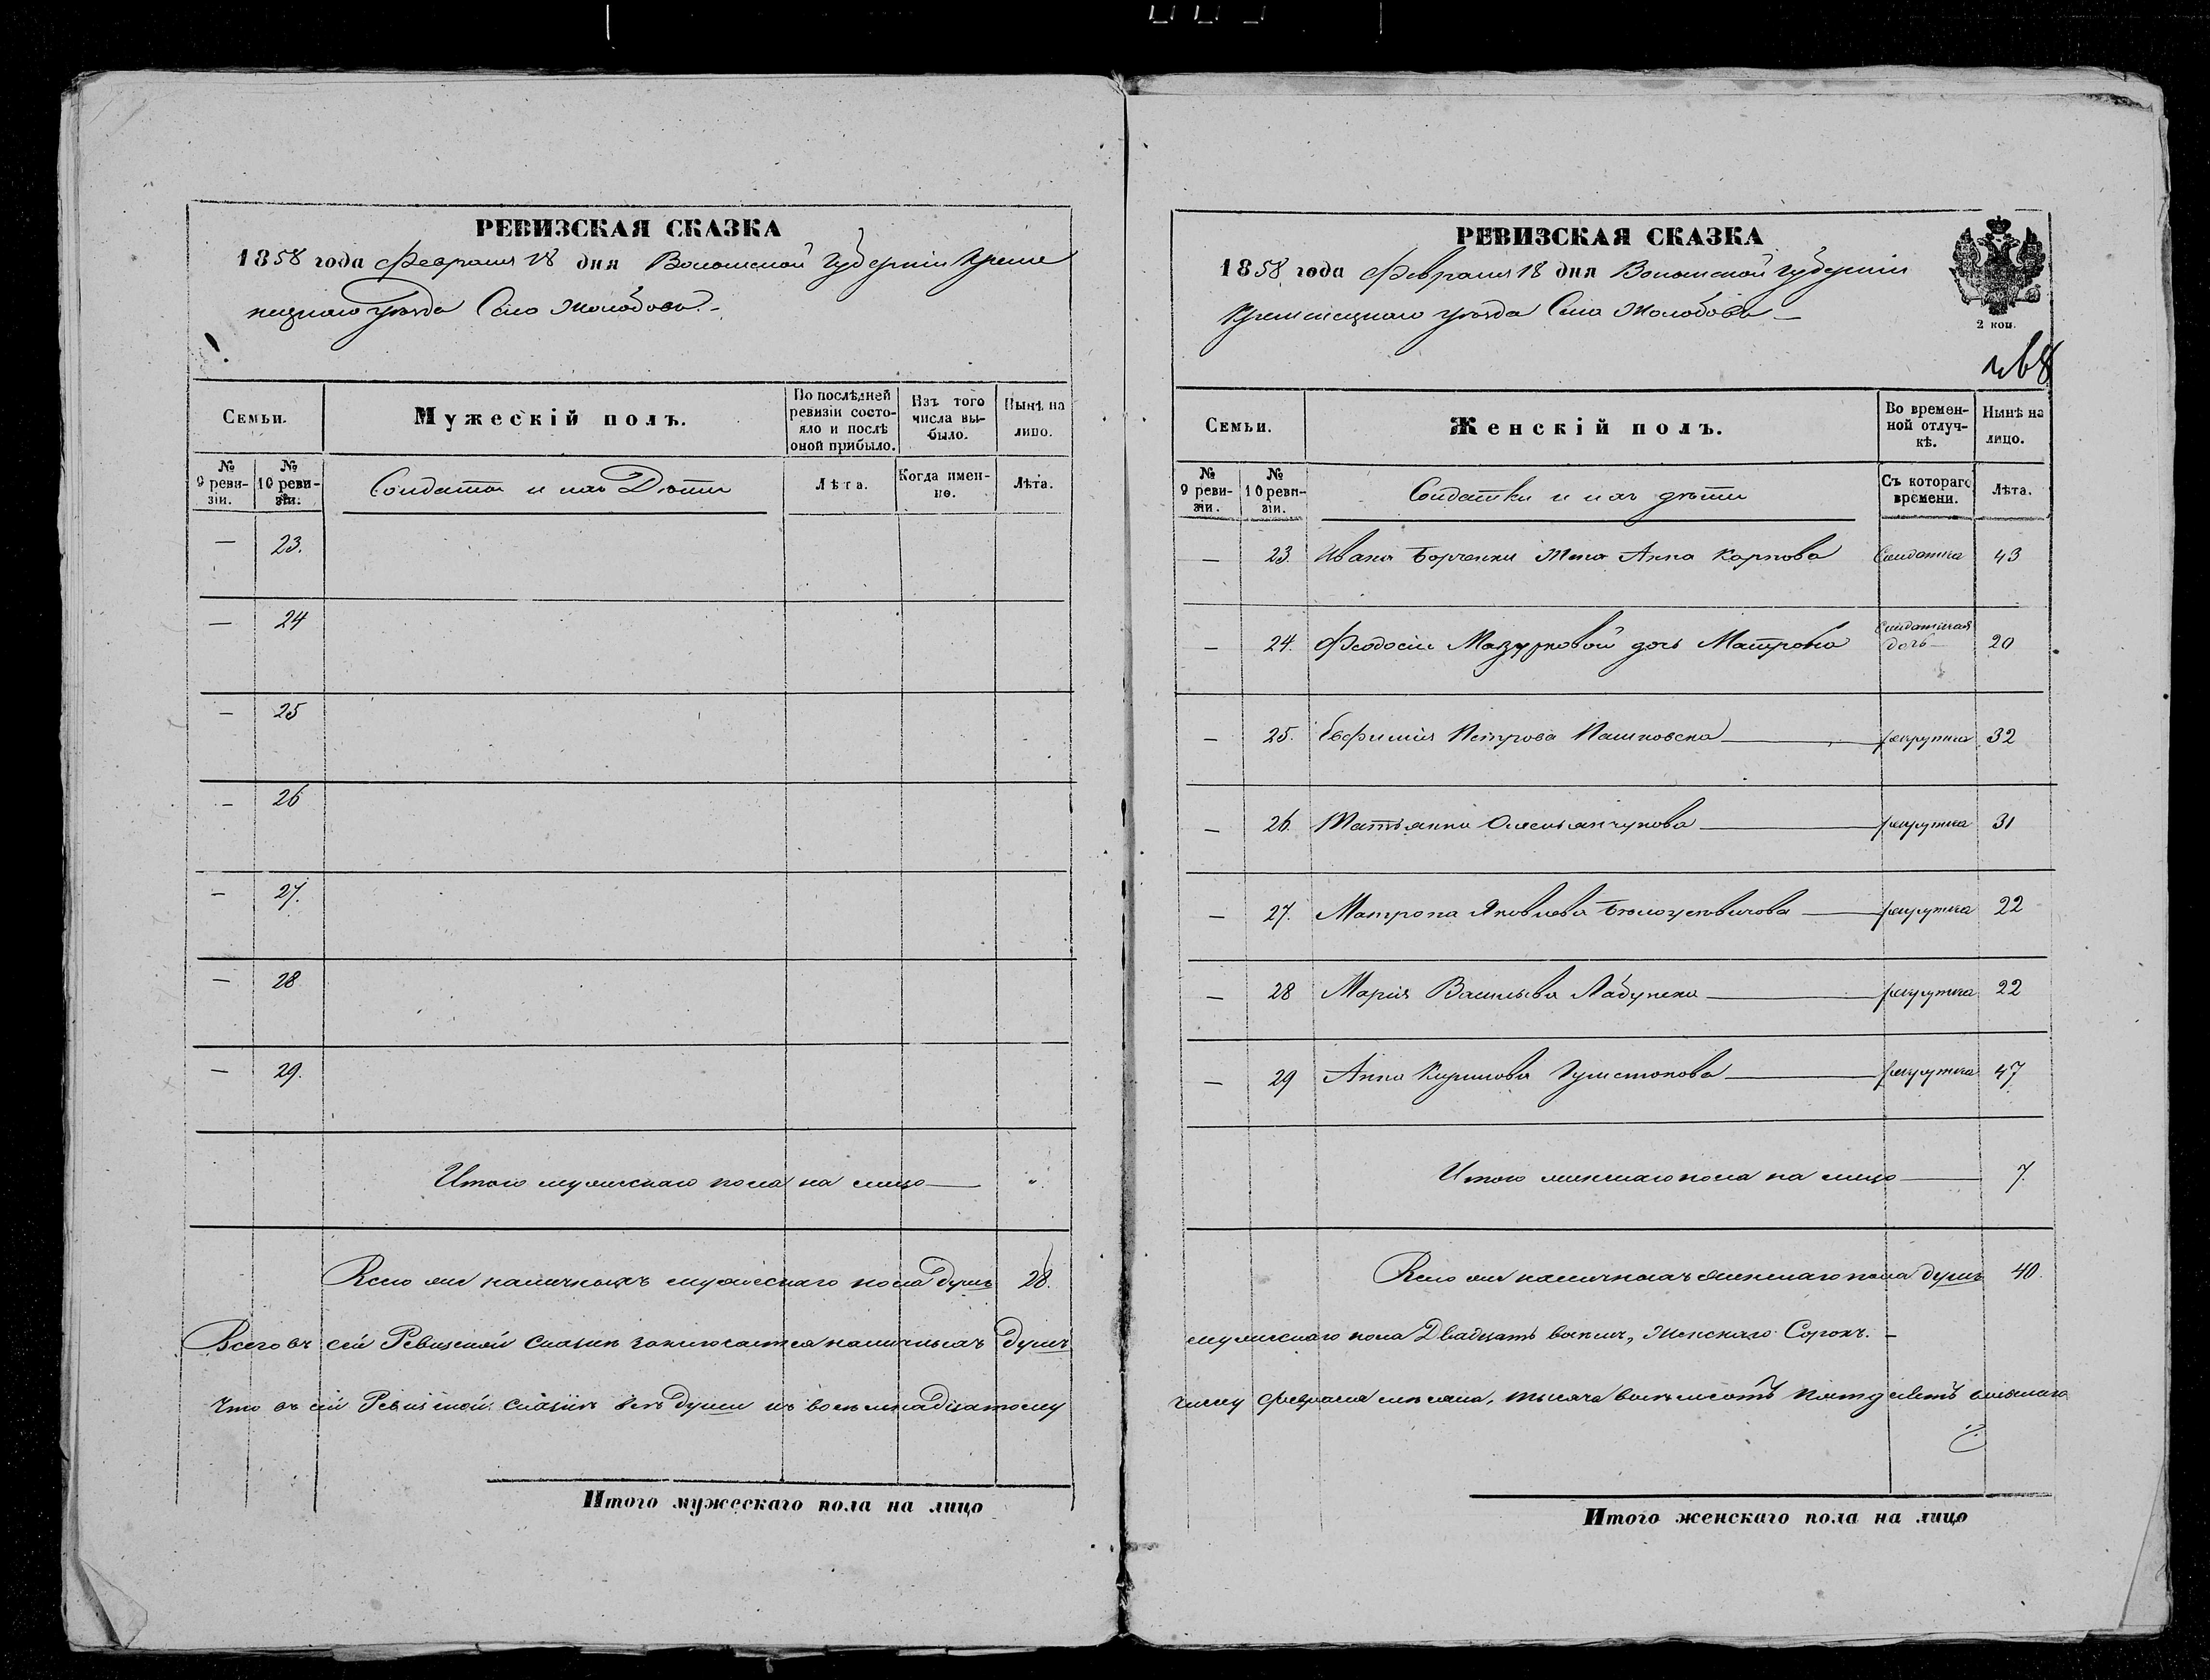 РЕВИЗСКАЯ СКАЗКА
1858 года Февраля 18 дня Волынской Губерніи Креме
нецкаго уѣзда Село Жолобовъ.
Семьи.
Мужескій полъ.
По послѣдней ревизіи состояло и послѣ оной прибыло.
Изъ того числа выбыло.
Нынѣ на лицо.
№ 9 ревизіи.
№ 10 ревизіи.
Солдаты и ихъ Дѣти
Лѣта.
Когда именно.
Лѣта.
— 23.
— 24
— 25
— 26
— 27.
— 28
— 29.
Итого мужескаго пола на лицо — "
Всего же наличныхъ мужескаго пола душъ 28.
Всего въ сей Ревизской сказкѣ заключается наличныхъ душъ
Что въ сей Ревизской сказкѣ всѣ души къ восемнадцатому
Итого мужескаго пола на лицо
РЕВИЗСКАЯ СКАЗКА
1858 года Февраля 18 дня Волынской Губерніи
Кременецкаго уѣзда Село Жолобовъ —
2 коп.
Семьи.
Женскій полъ.
Во временной отлучкѣ.
Нынѣ на лицо.
№ 9 ревизіи.
№ 10 ревизіи.
Солдатки и ихъ дѣти
Съ котораго времени.
Лѣта.
— 23. Ивана Борченки Жена Анна Карпова Солдатка 43
— 24. Феодосіи Мазурковой дочь Матрона Солдатская дочь 20
— 25. Евфимія Петрова Пашковска — рекрутка 32
— 26. — рекрутка 31
— 27. Матрона Яковлева — рекрутка 22
— 28 Марія Васильева Лабунска — рекрутка 22
— 29 Анна Кирилова — рекрутка 47
Итого женскаго пола на лицо — 7.
Всего же наличныхъ женскаго пола душъ 40.
мужескаго пола Двадцать восемь, Женскаго Сорокъ. —
числу Февраля мѣсяца, тысяча восемьсотъ
Итого женскаго пола на лицо